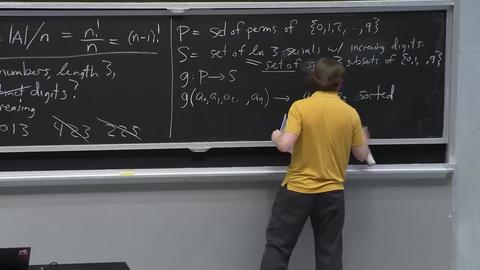 = |A|/n = n!/n = (n-1)!
numbers, length 3,
digits?
013 423 225
P = set of perms of {0,1,2, -, 9}
S = set of len 3 serials w/ increasing digits.
= set of size 3 subsets of {0,1, , 9}
g: P → S
g(a₀,a₁,a₂.. ,a₉) → sorted